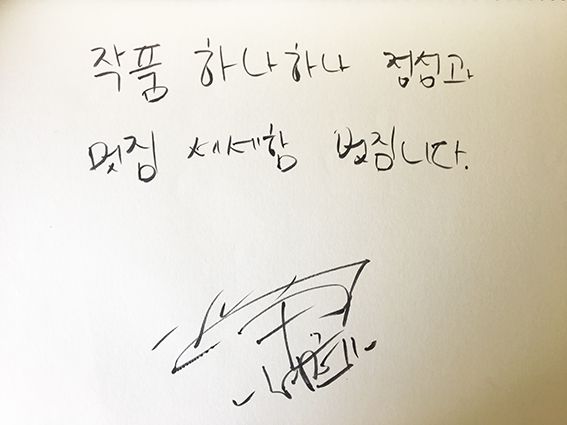 작품 하나하나 정성과
멋짐 세세함 멋집니다.